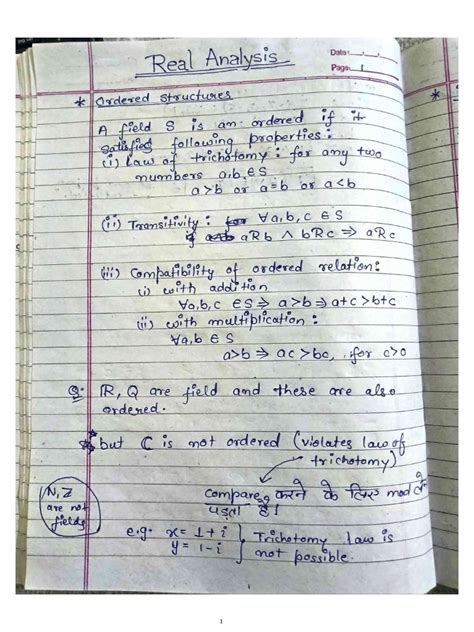 Real Analysis
Date:
Page: 1
* Ordered structures
A field S is an ordered if it
satisfied following properties:
(i) law of trichotomy: for any two
numbers a,b,∈S
a>b or a=b or a<b
(ii) Transitivity: ∀a,b,c ∈S
aRb ∧ bRc ⇒ aRc
(iii) Compatibility of ordered relation:
(i) with addition
∀a,b,c ∈S ⇒ a>b ⇒ a+c>b+c
(ii) with multiplication:
∀a,b ∈ S
a>b ⇒ ac>bc, for c>0
Q. ℝ, Q are field and these are also
ordered.
* but ℂ is not ordered (violates law of
trichotomy)
N,Z
are not
fields
compare करने के लिए mod लेना
पड़ता है।
e.g. x = 1+i
y = 1-i
Trichotomy law is
not possible.
1